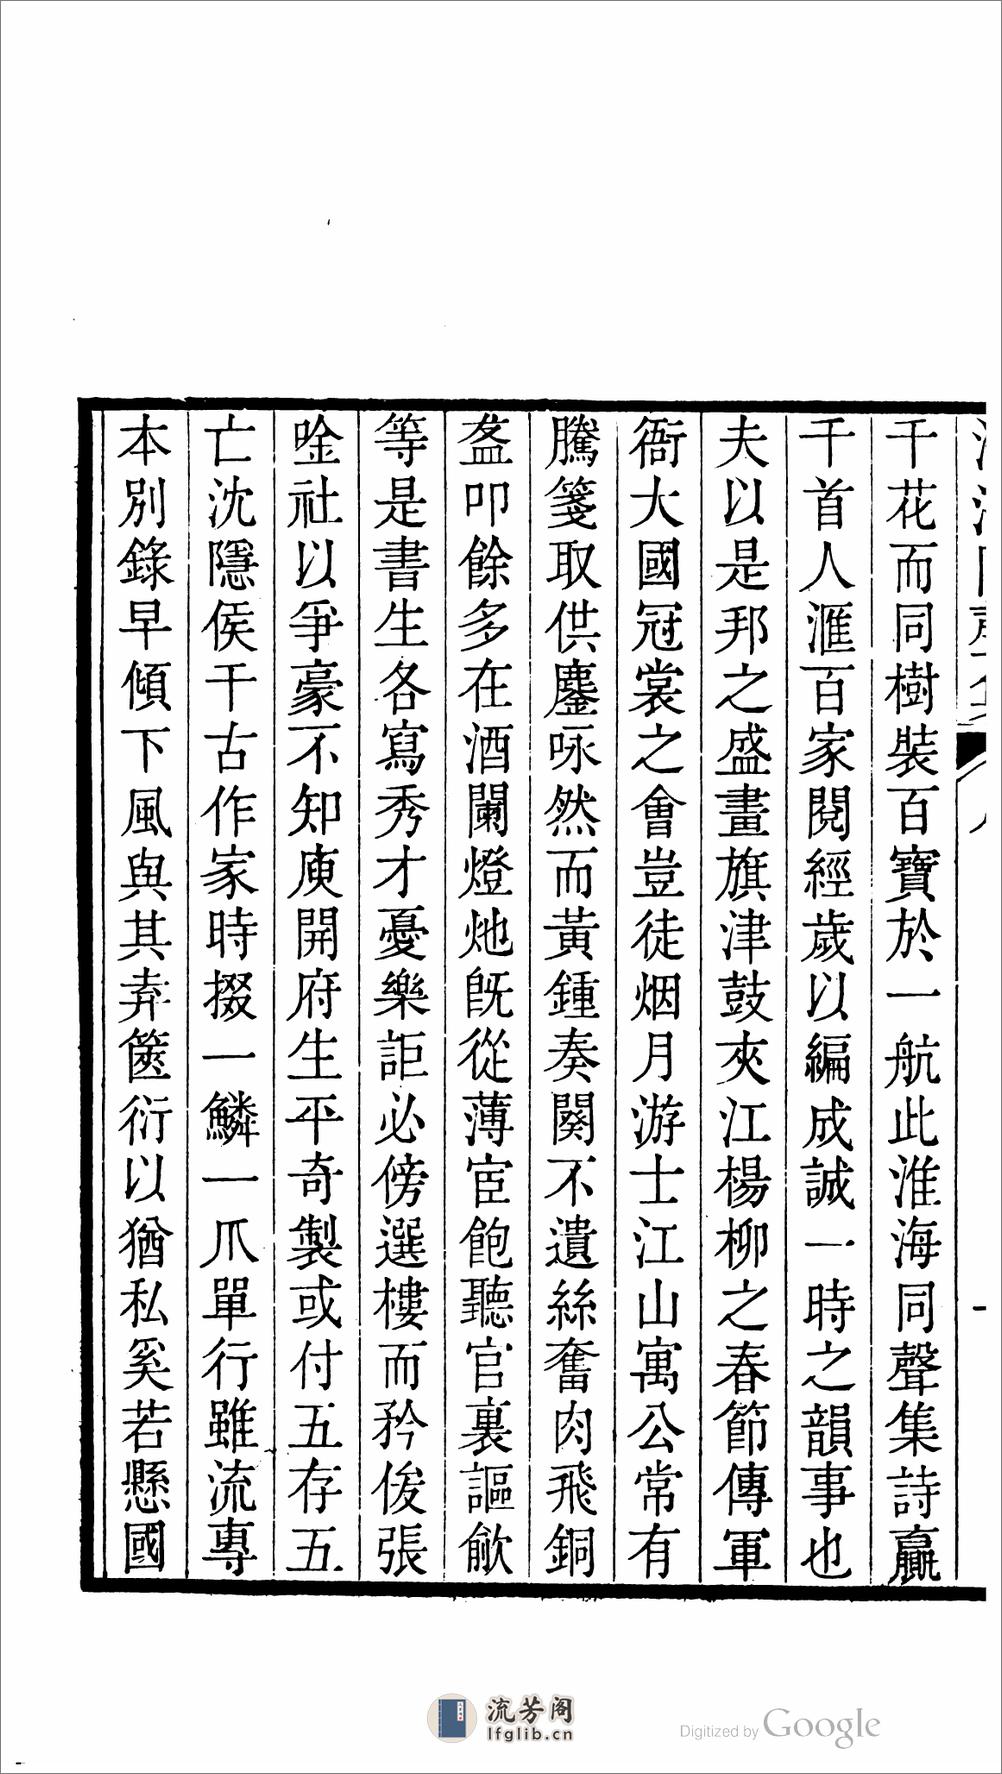 千花而同樹裝百寶於一航此淮海同聲集詩贏
千首人滙百家閱經歲以編成誠一時之韻事也
夫以是邦之盛畫旗津鼓夾江楊柳之春節傳軍
衙大國冠裳之會豈徒烟月游士江山寓公常有
騰箋取供鏖咏然而黃鍾奏闋不遺絲奮肉飛銅
盋叩餘多在酒闌燈灺旣從薄宦飽聽官裏謳歈
等是書生各寫秀才憂樂詎必傍選樓而矜俊張
唫社以爭豪不知庾開府生平奇製或付五存五
亡沈隱侯千古作家時掇一鱗一爪單行雖流專
本別錄早傾下風與其弆篋衍以猶私奚若懸國
流芳阁
lfglib.cn
Digitized by Google